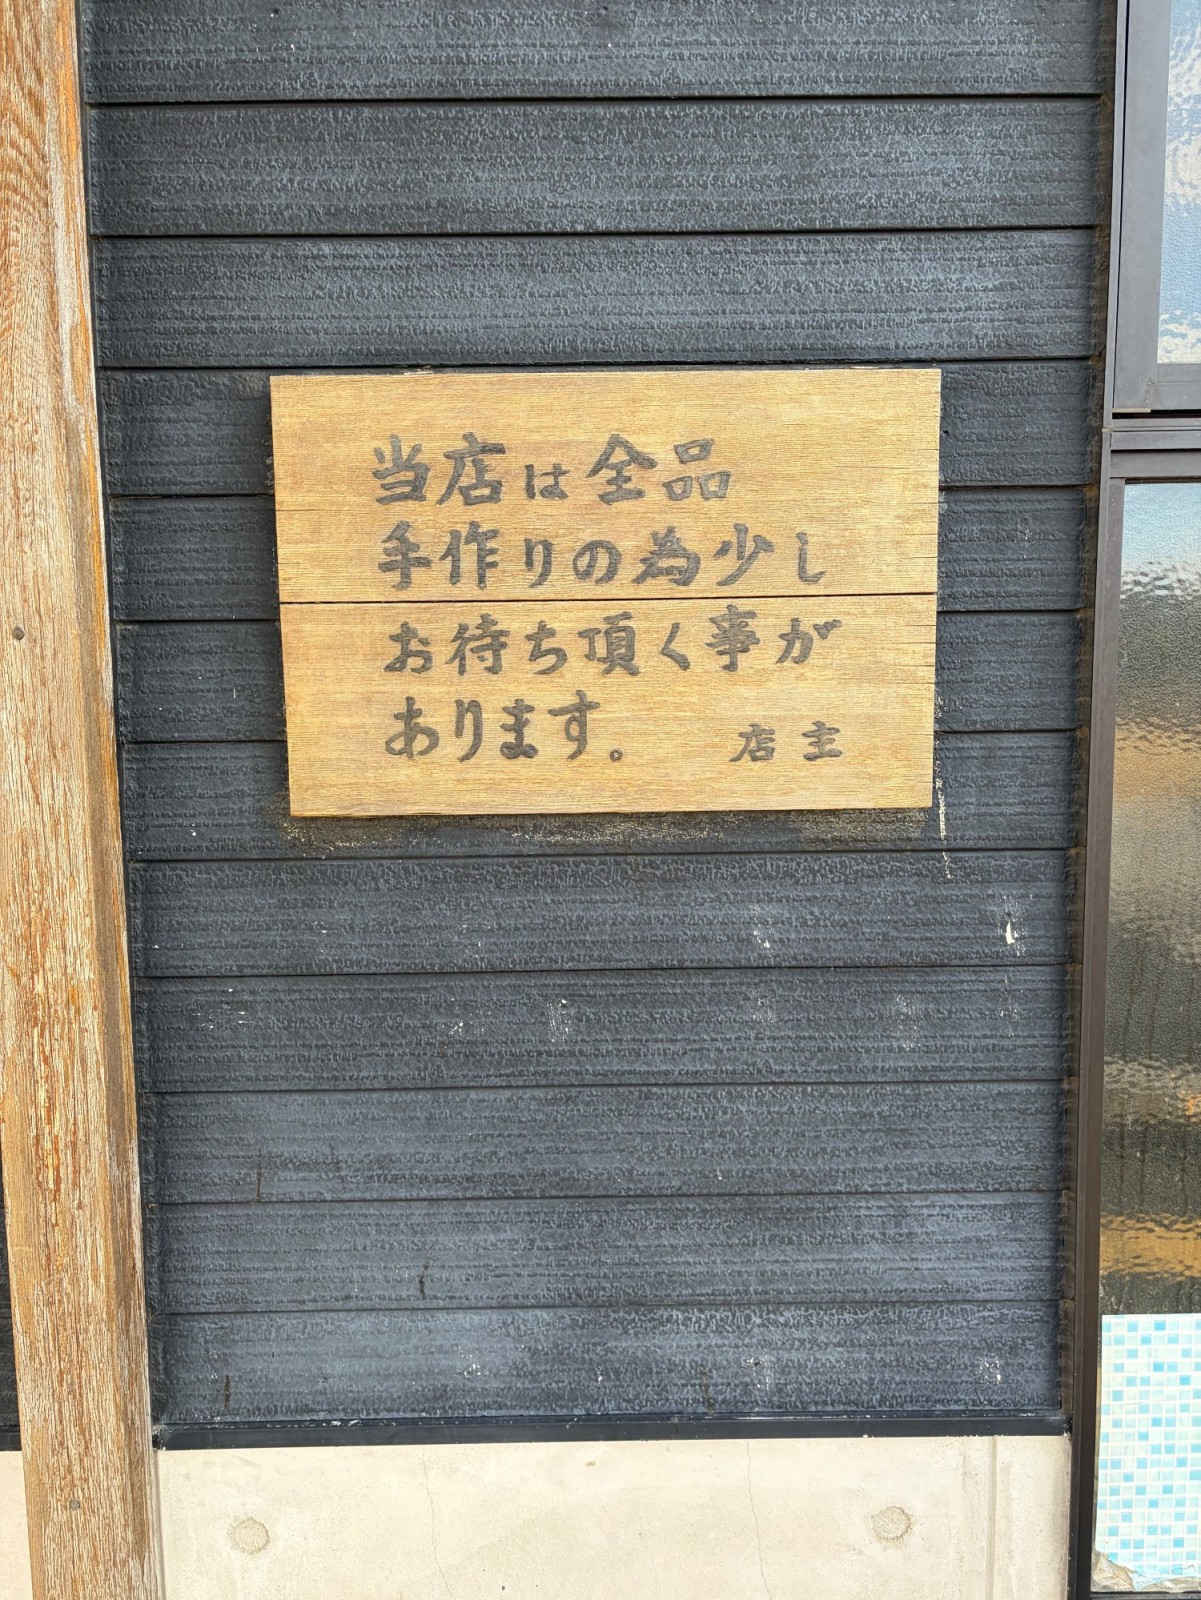 当店は全品
手作りの為少し
お待ち頂く事が
あります。 店主